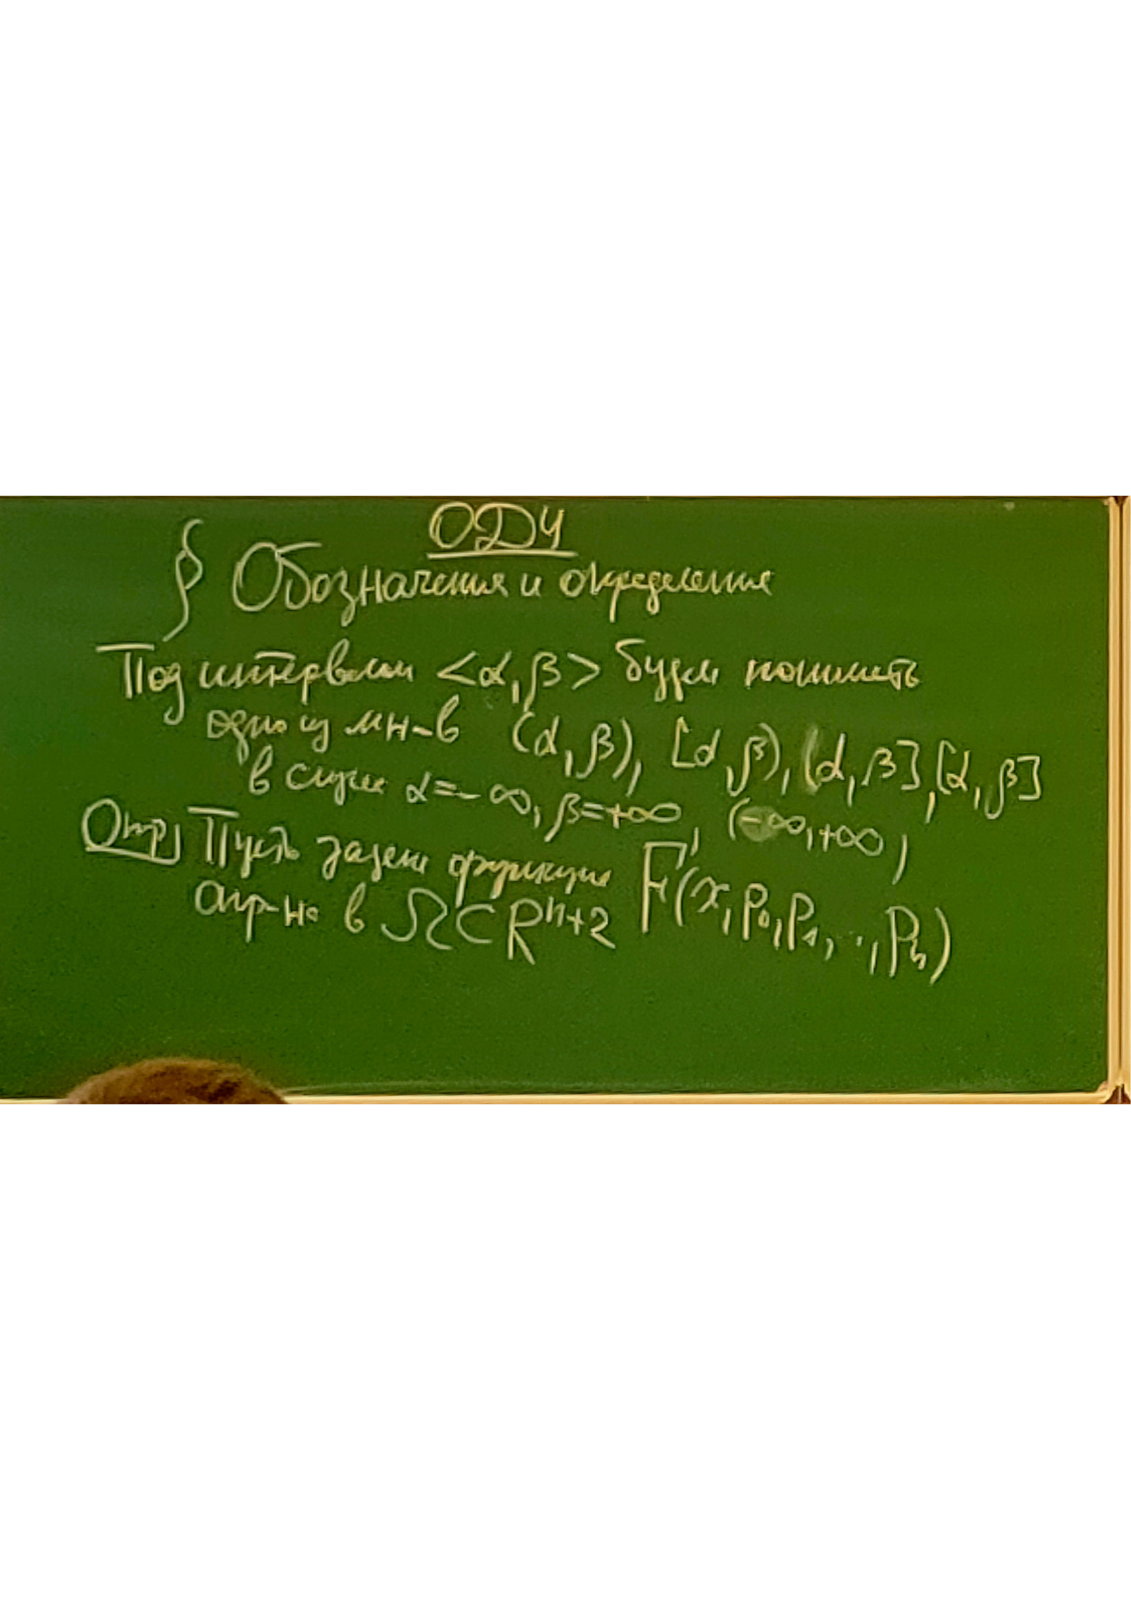 ОДУ
§ Обозначения и определения
Под интервалом <α, β> будем понимать
одно из мн-в (α, β), [α, β), (α, β], [α, β]
в случае α=-∞, β=+∞, (-∞,+∞)
Опр] Пусть задана функция F(x, p₀, p₁, .., pₙ)
опр-на в Ω⊂Rⁿ⁺²